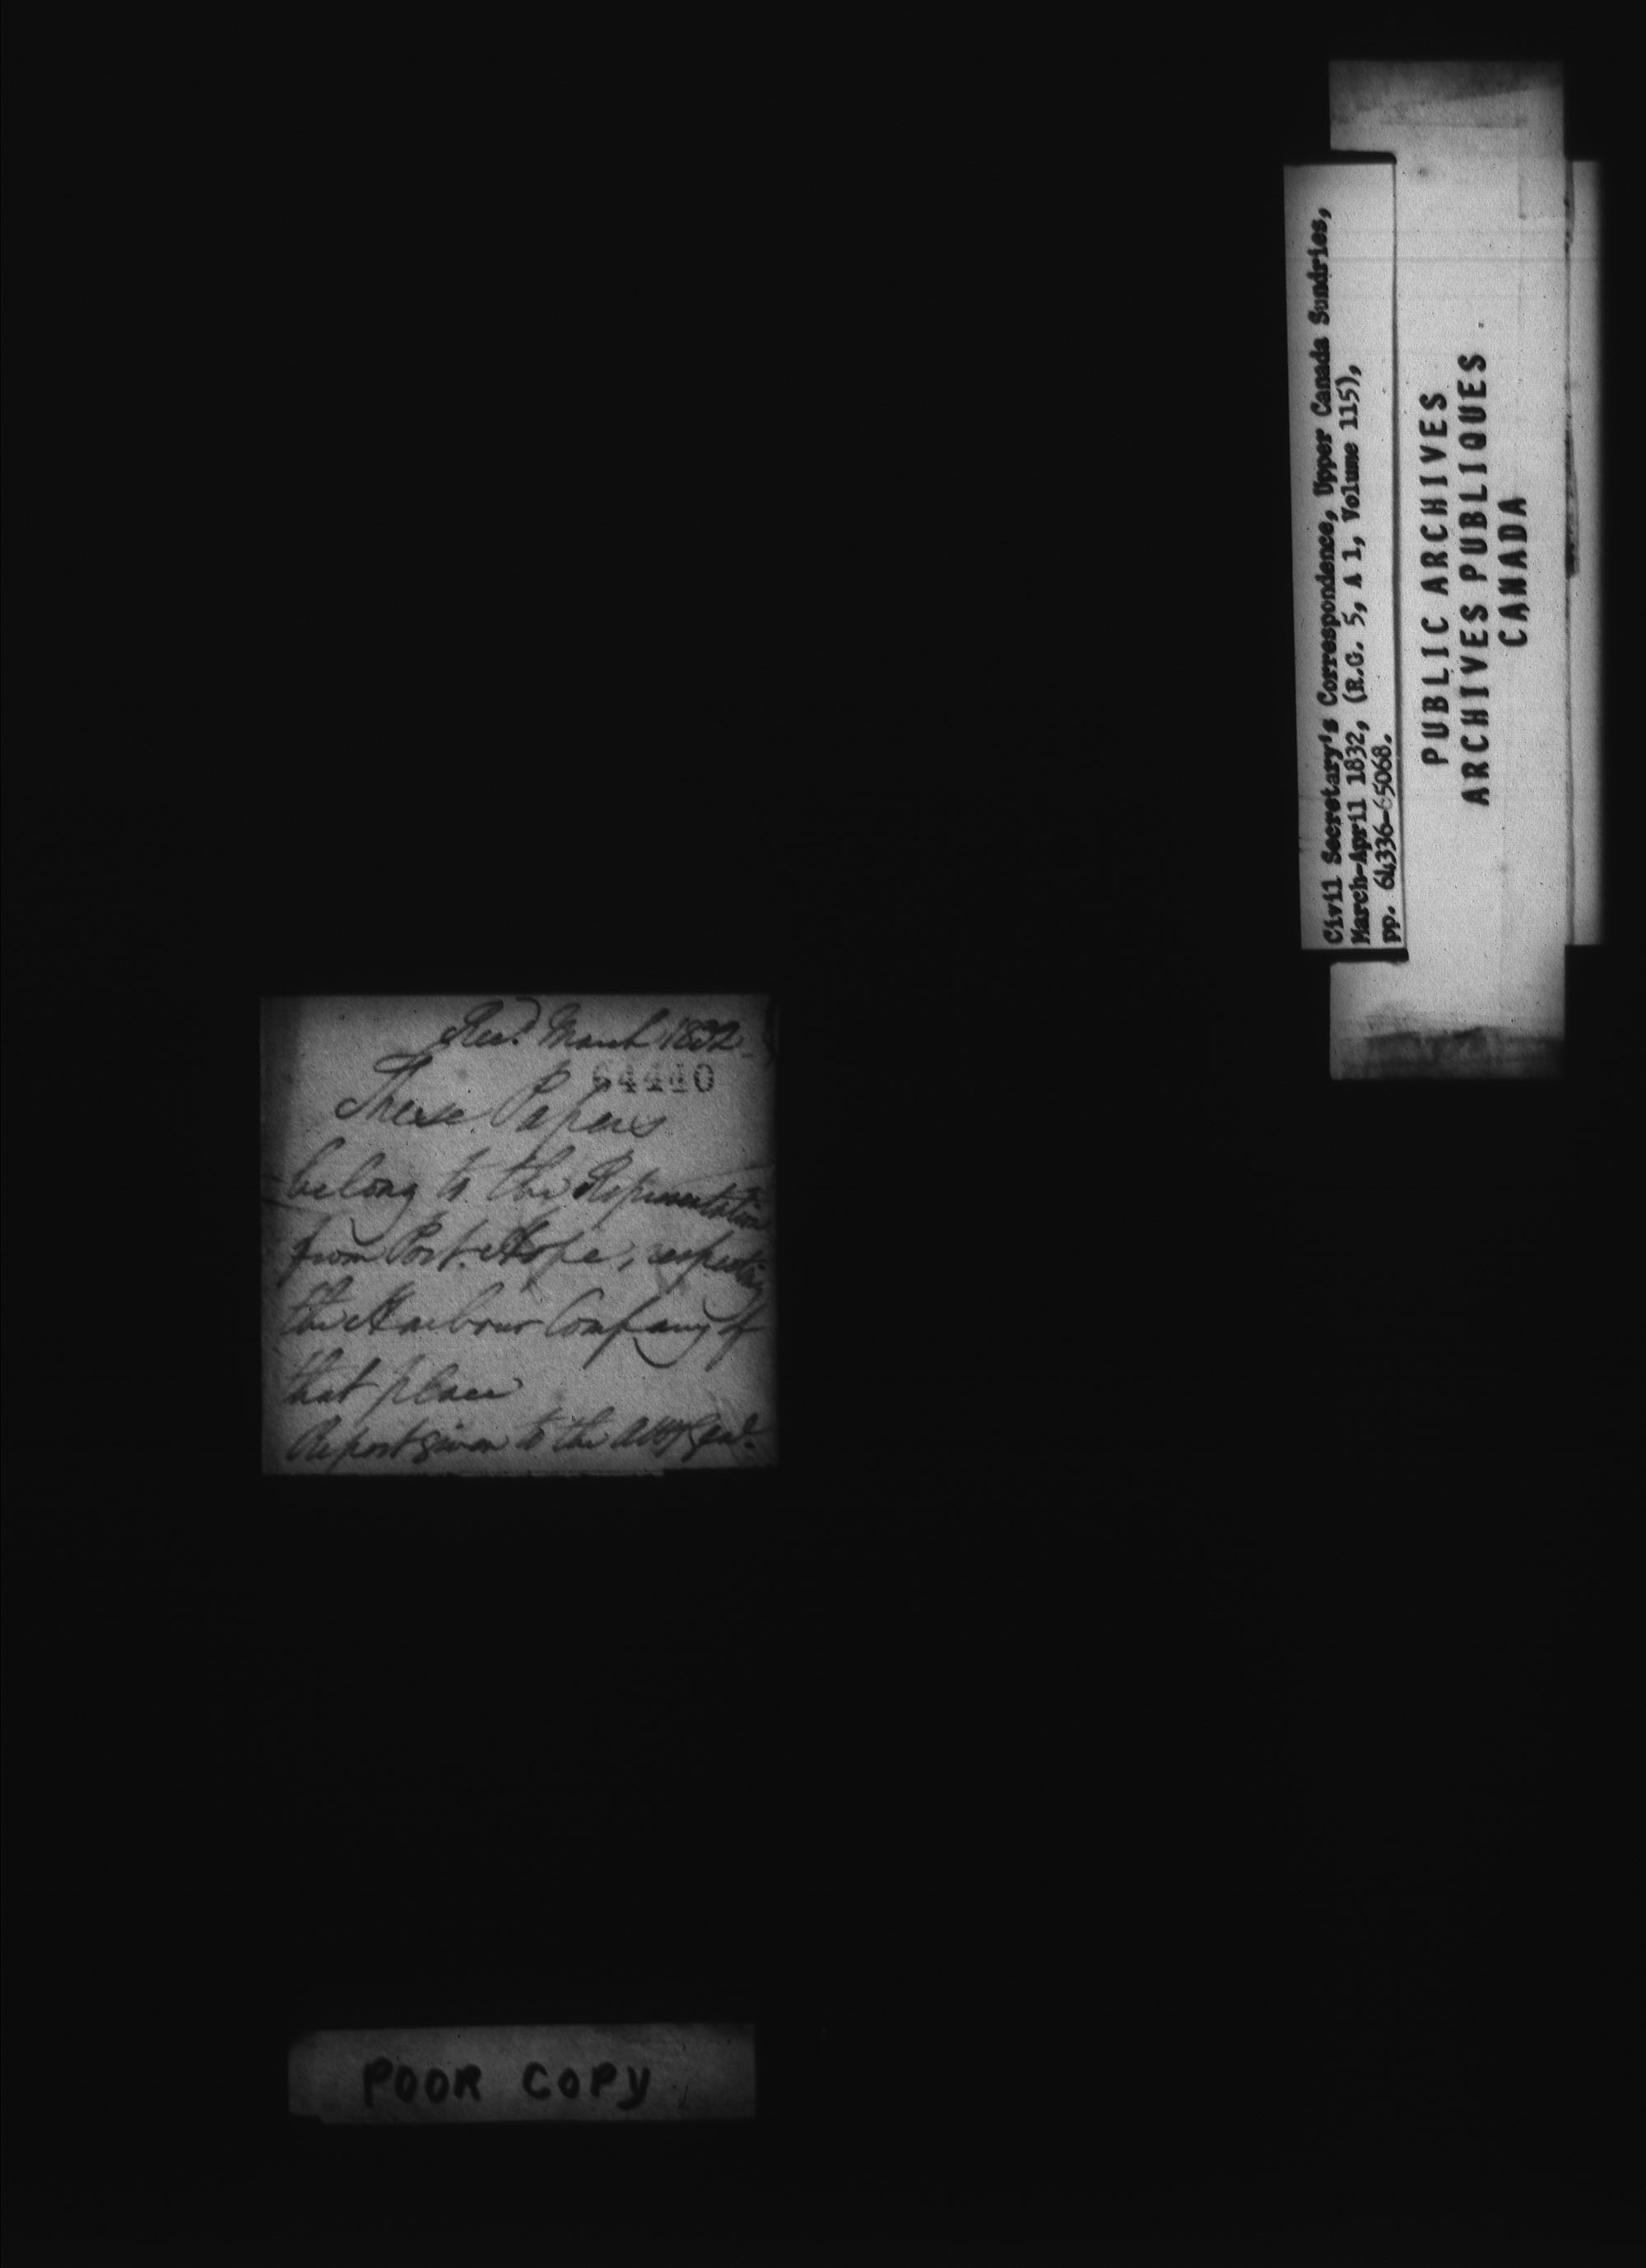 Rec.d March 1832.
64440
These Papers
belong to the Representation
from Port Hope, respecting
the Harbour Company of
that place
Report given to the Atty Genl.
POOR COPY
Civil Secretary's Correspondence, Upper Canada Sundries,
March-April 1832, (R.G. 5, A 1, Volume 115),
pp. 64336-65068.
PUBLIC ARCHIVES
ARCHIVES PUBLIQUES
CANADA